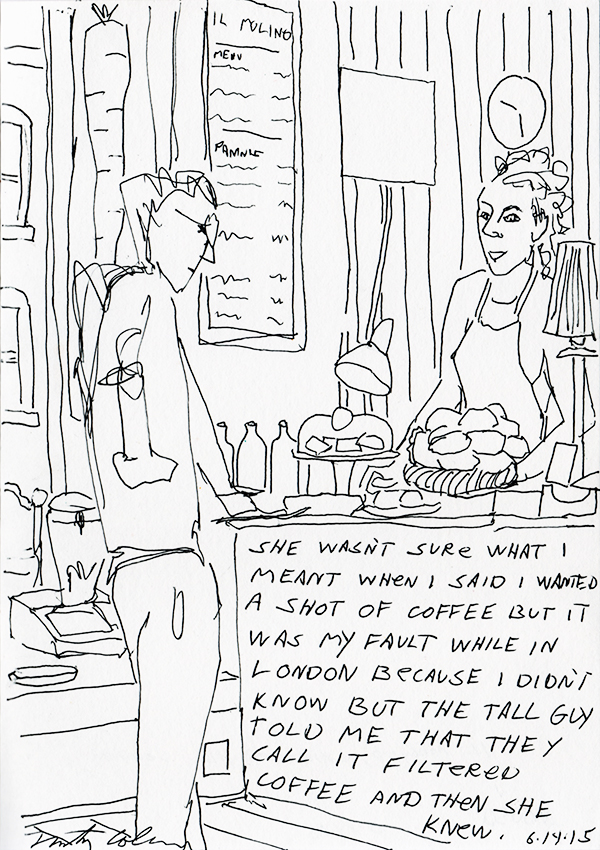 IL MULINO
MENU
SHE WASN'T SURE WHAT I
MEANT WHEN I SAID I WANTED
A SHOT OF COFFEE BUT IT
WAS MY FAULT WHILE IN
LONDON BECAUSE I DIDN'T
KNOW BUT THE TALL GUY
TOLD ME THAT THEY
CALL IT FILTERED
COFFEE AND THEN SHE
KNEW. 6.14.15